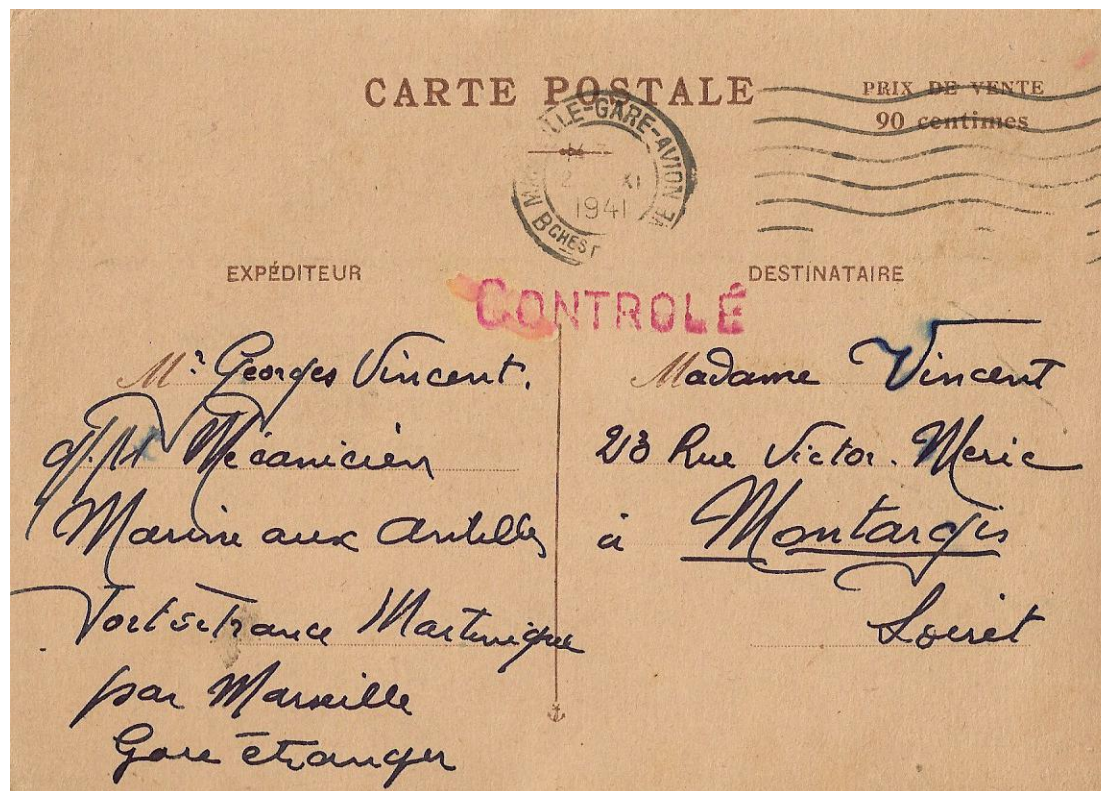 CARTE POSTALE
PRIX DE VENTE
90 centimes
LLE-GARE-AVION
2 XI
1941
BCHES
EXPÉDITEUR
DESTINATAIRE
CONTROLÉ
Mr Georges Vincent.
Mécanicien
Marine aux Antilles
Fort de France Martinique
par Marseille
Gare étranger
Madame Vincent
23 Rue Victor. Meric
à Montargis
Loiret